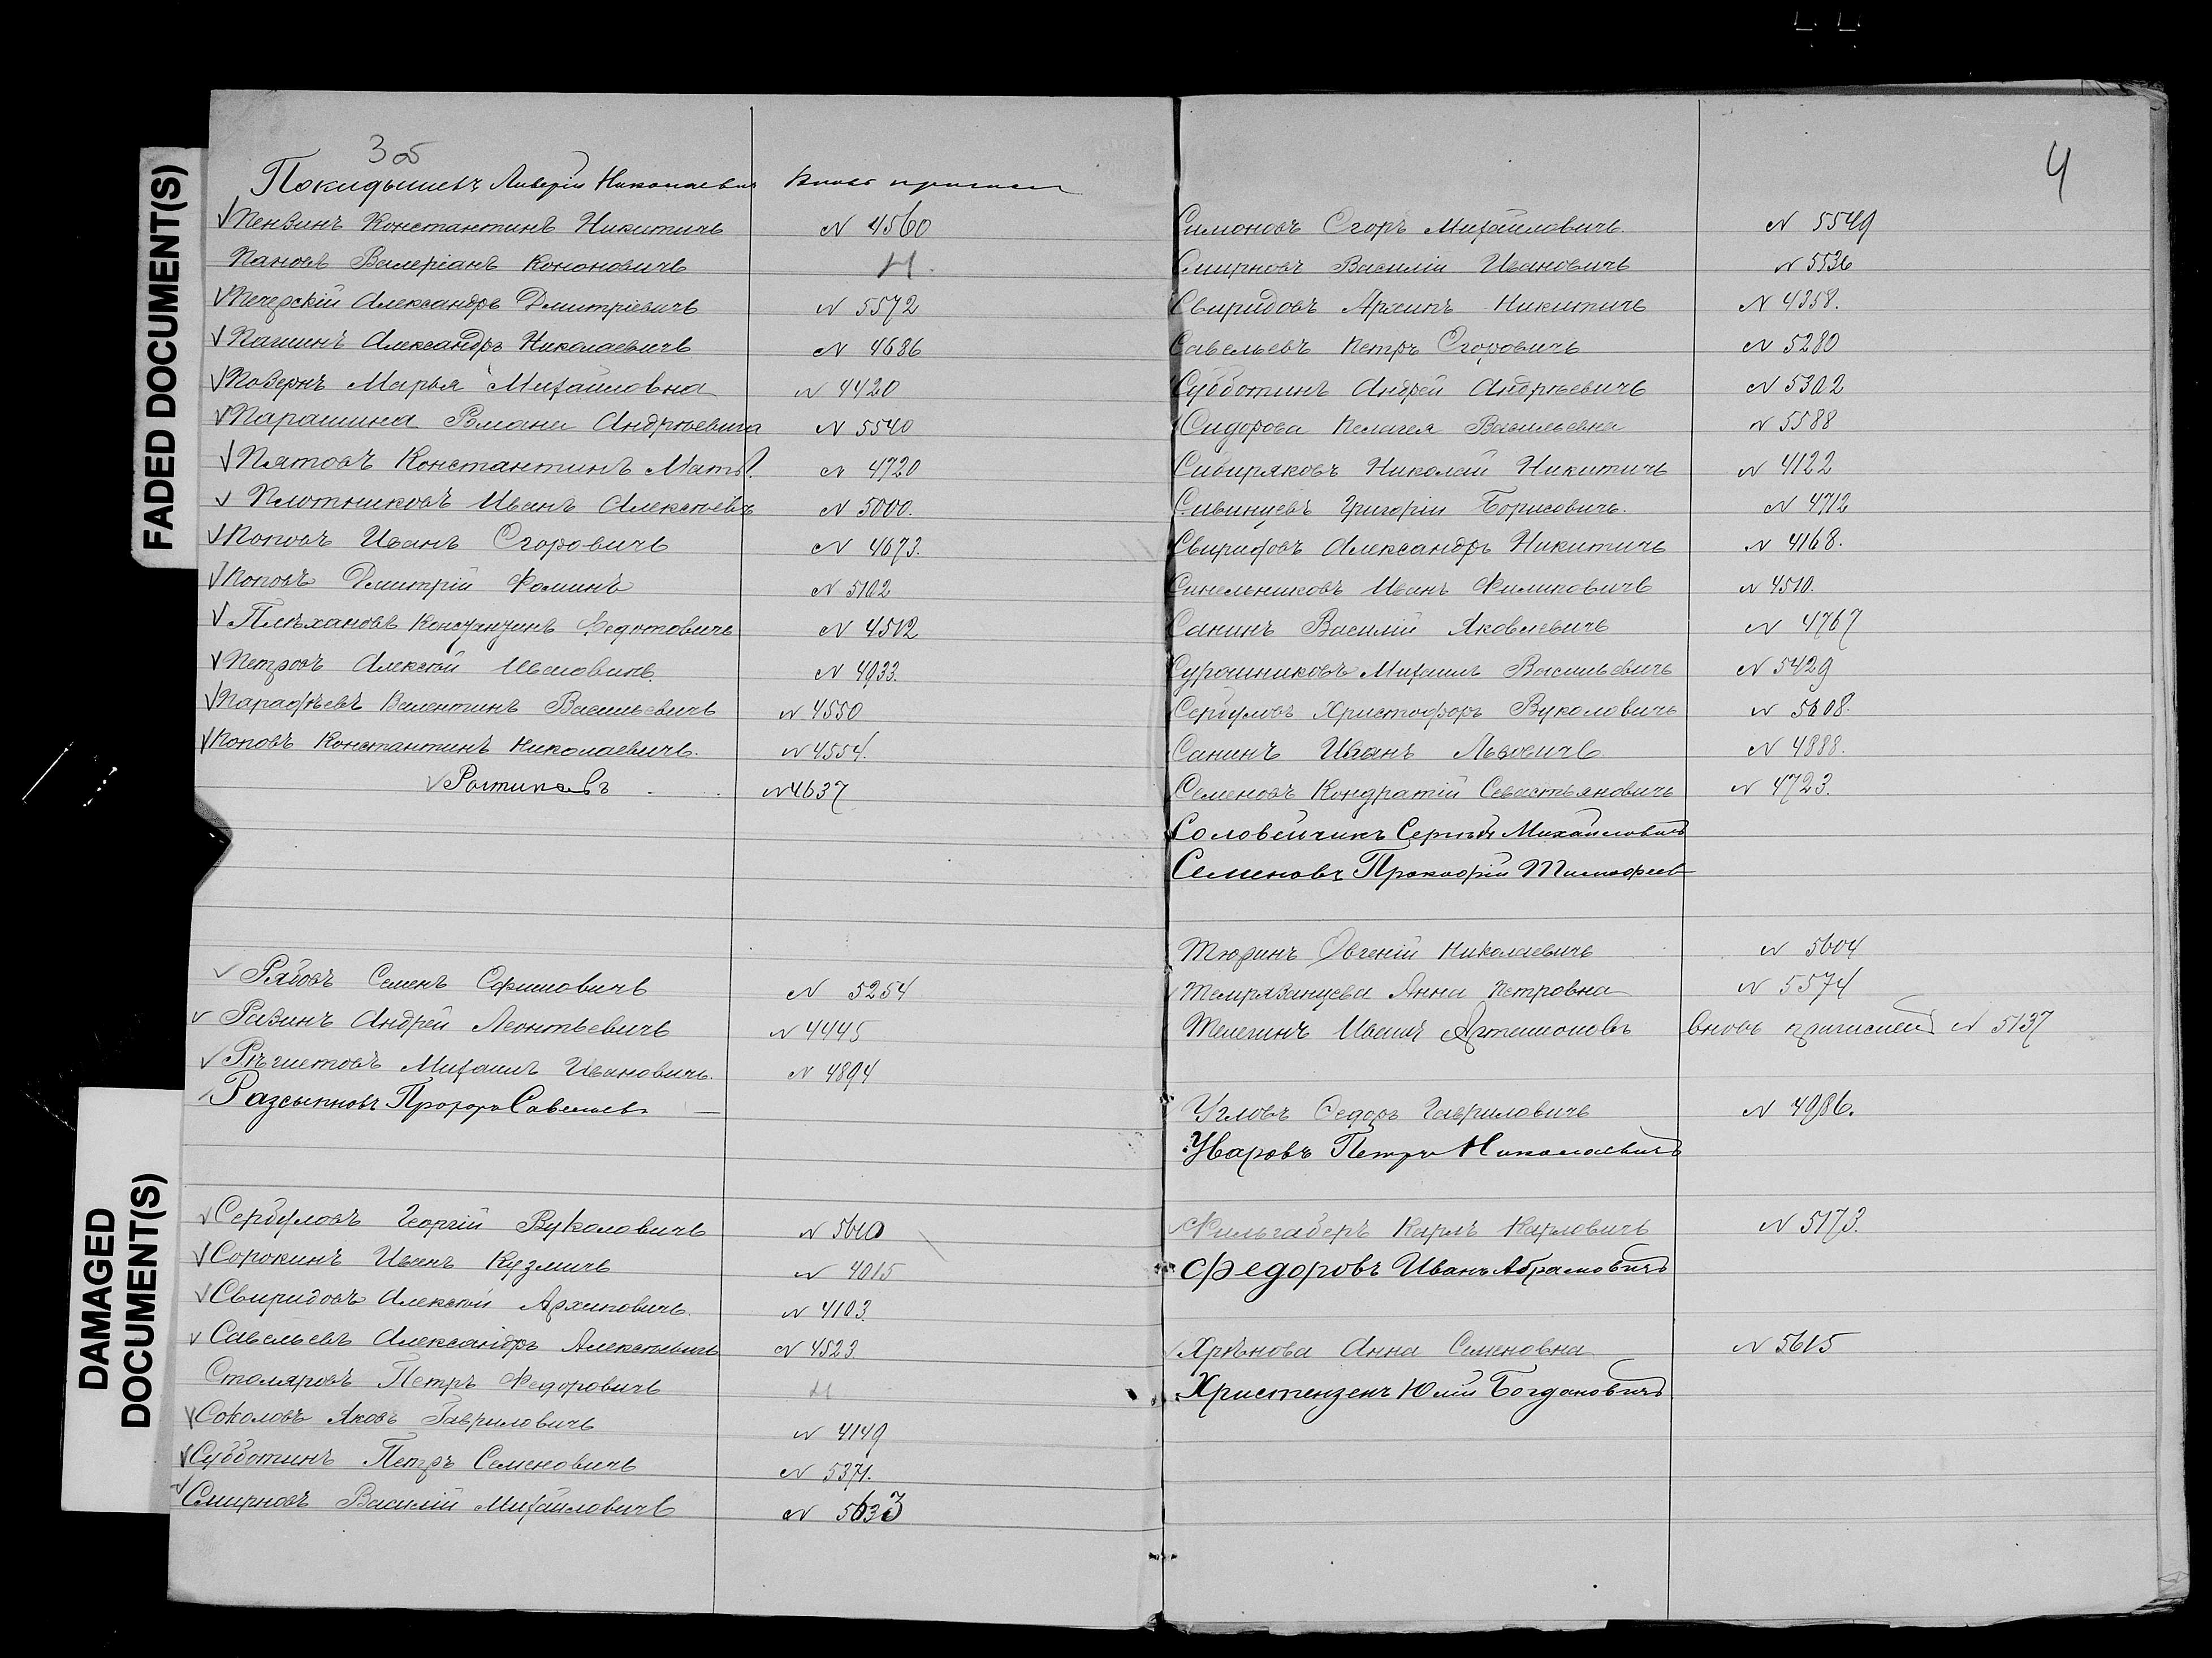 FADED DOCUMENT(S)
DAMAGED DOCUMENT(S)
3 об
Покидышевъ Ливерій Николаевич Вновь причисл
Пензинъ Константинъ Никитичъ N 4560
Пановъ Валеріанъ Кононовичъ Н.
Печерскій Александръ Дмитріевичъ N 5572
Пашинъ Александръ Николаевичъ N 4686
Повернъ Марья Михайловна N 4420
Парашина Романа Андреевича N 5540
Пятовъ Константинъ Матв. N 4720
Плотниковъ Иванъ Алексѣевъ N 5000.
Поповъ Иванъ Егоровичъ N 4673.
Поповъ Дмитрій Фоминъ N 5102
Плѣхановъ Константинъ Федотовичъ N 4512
Петровъ Алексѣй Ивановичъ N 4933.
Парафѣевъ Валентинъ Васильевичъ N 4550
Поповъ Константинъ Николаевичъ. N 4554.
N 4637
Рябовъ Семенъ Ефимовичъ N 5254
Разинъ Андрей Леонтьевичъ N 4445
Рѣчистовъ Михаилъ Ивановичъ. N 4894
Разсыпновъ Савельев
Сербуловъ Георгій Вуколовичъ N 5610
Сорокинъ Иванъ Кузмичъ N 4015
Свиридовъ Алексѣй Архиповичъ. N 4103
Савельевъ Александръ Алексѣевичъ N 4523
Столяровъ Петръ Федоровичъ Н
Соколовъ Яковъ Гавриловичъ N 4149
Субботинъ Петръ Семеновичъ N 5371.
Смирновъ Василій Михайловичъ N 5633
4
Симоновъ Егоръ Михайловичъ. N 5549
Смирновъ Василій Ивановичъ N 5536
Свиридовъ Архипъ Никитичъ N 4358.
Савельевъ Петръ Егоровичъ N 5280
Субботинъ Андрей Андреевичъ N 5302
Сидорова Пелагея Васильевна N 5588
Сибиряковъ Николай Никитичъ N 4122
Сивинцевъ Григорій Борисовичъ. N 4712
Свиридовъ Александръ Никитичъ N 4168.
Синельниковъ Иванъ Филиповичъ N 4510.
Санинъ Василій Яковлевичъ N 4767
Сурошниковъ Михаилъ Васильевичъ N 5429
Сербуловъ Христофоръ Вуколовичъ N 5608.
Санинъ Иванъ Львовичъ N 4888.
Семеновъ Кондратій Севастьяновичъ N 4723.
Соловейчикъ Сергѣй Михайловичъ
Семеновъ Прокофій Тимофеев
Тюринъ Евгеній Николаевичъ N 5604
Темирязанцева Анна Петровна N 5574
Телегинъ Иванъ Артемоновъ вновь причислен N 5137
Угловъ Федоръ Гавриловичъ N 4986.
Уваровъ Петръ Николаевичъ
Фильгаберъ Карлъ Карловичъ N 5173.
Федоровъ Иванъ Абрамовичъ
Хрѣнова Анна Семеновна N 5615
Христензенъ Юлій Богдановичъ